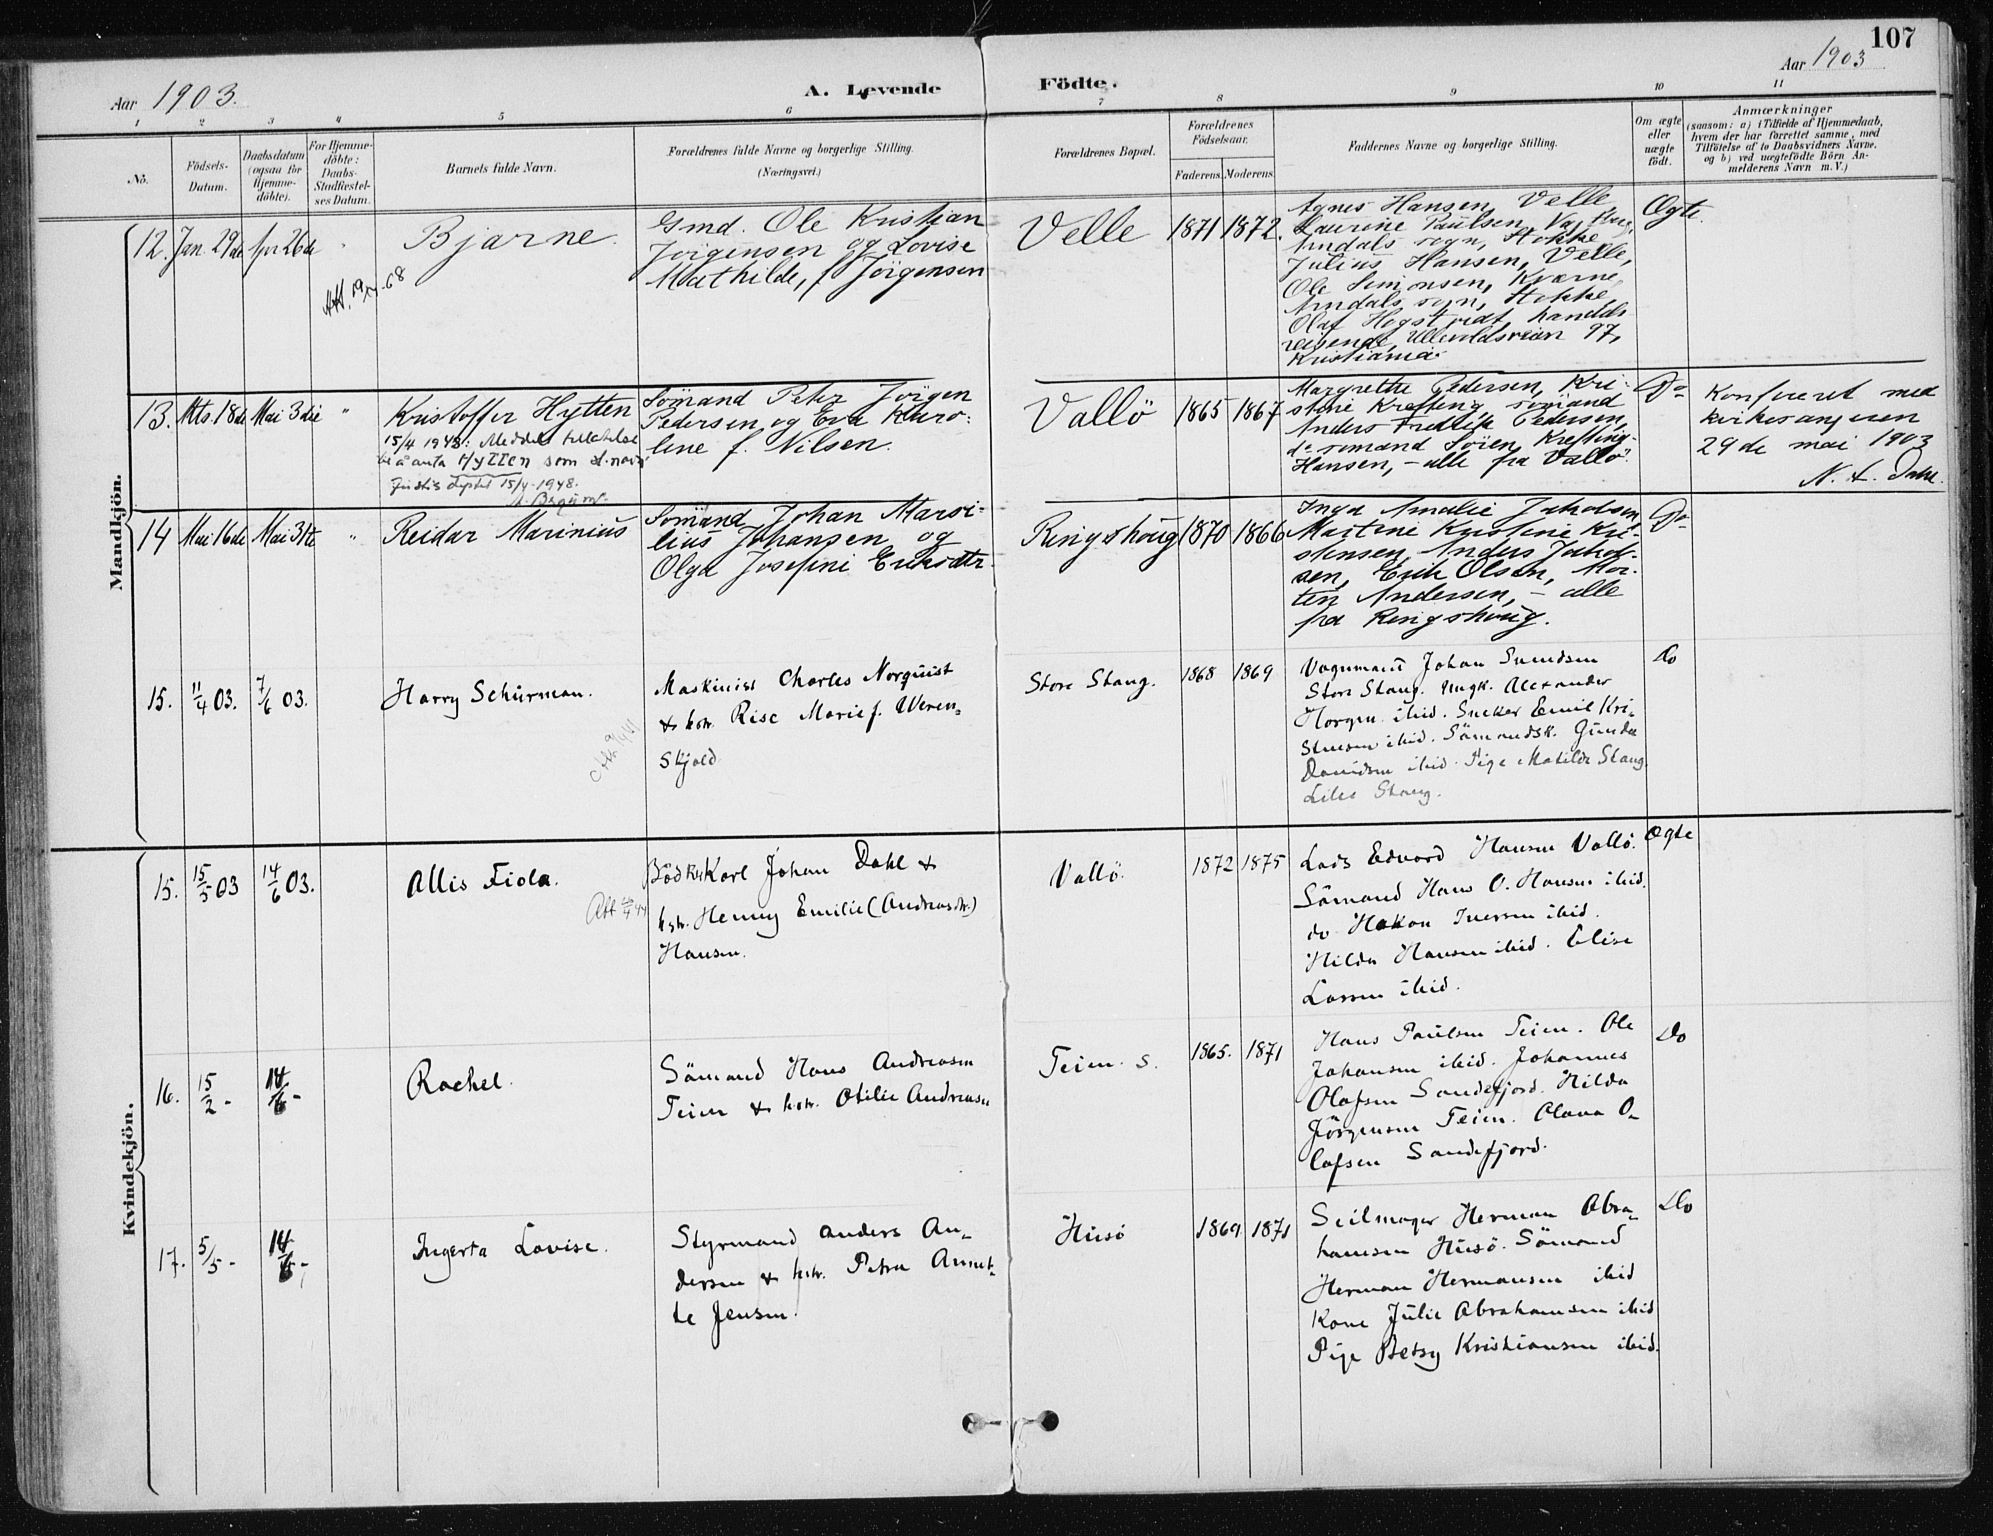 107
Aar 1903.
A. Levende
Födte.
Aar 1903
1 2 3 4 5 6 7 8 9 10 11
No.
Födsels-
Datum.
Daabsdatum
(ogsaa for
Hjemme-
döbte).
For Hjemme-
döbte:
Daabs-
Stadfæstel-
ses Datum.
Barnets fulde Navn.
Forældrenes fulde Navne og borgerlige Stilling.
(Næringsvei.)
Forældrenes Bopæl.
Forældrenes
Födselsaar.
Faderens. Moderens.
Faddernes Navne og borgerlige Stilling.
Om ægte
eller
uægte
födt.
Anmærkninger
(saasom: a) i Tilfælde af Hjemmedaab,
hvem der har forrettet samme, med
Tilföielse af to Daabsvidners Navne,
og b) ved uægtefödte Börn An-
melderens Navn m.V.)
Mandkjön.
12. Jan. 29de Apr 26de "
Bjarne.
Gmd. Ole Kristian
Jörgensen og Lovise
Mathilde, f. Jörgensen
Velle 1871 1872.
Agnes Hansen, Velle,
Laurine Paulsen,
Arndals sogn, Stokke,
Julius Hansen, Velle,
Ole Simonsen, Kvarne,
Arndals sogn, Stokke,
Olaf Hogstvedt, handels
reisende, Ullevoldsveien 97,
Kristiania.
Ægte.
13. Mts. 18de Mai 3die "
Kristoffer Hytten
15/4 1948: Meddelt tillatelse
til å anta Hytten som sl.navn
Justis deptet 15/4-1948.
Sömand Peter Jörgen
Pedersen og Eva Karo-
line f. Nilsen.
Vallö 1865 1867
Margrethe Pedersen, Kri-
stine Krefting, sömand
Anders Fredrik Pedersen,
do sömand Sören Krefting-
Hansen, - alle fra Vallö.
Do
Konfereret med
kirkesangeren
29de mai 1903
14 Mai 16de Mai 31te "
Reidar Marinius
Sömand Johan Marsi-
lius Johansen og
Olga Josefine Eriksdtr.
Ringshoug 1870 1866
Inga Amalie Jakobsen
Martine Kristine Kri-
stensen, Anders Jakob-
sen, Erik Olsen, Mor-
ten Andersen, - alle
fra Ringshoug.
Do
15. 11/4 03. 7/6 03.
Harry Schürman.
Maskinist Charles Norquist
& hstr. Rise Marie f. Weren-
skjold
Store Stang. 1868 1869
Vognmand Johan Svendsen
Store Stang. Ungk. Alexander
Horgen ibid. Snekker Emil Kri-
stensen ibid. Sömandsk. Gunda
Davidsen ibid. Pige Matilde Stang
Lille Stang.
Do
Kvindekjön.
15. 15/5 03 14/6 03.
Allis Fiola.
Bödker Karl Johan Dahl &
hstr. Henny Emilie (Andreasdtr.)
Hansen.
Vallö. 1872 1875
Lods Edvard Hansen Vallö.
Sömand Hans O. Hansen ibid.
do Hakon Iversen ibid.
Hilda Hansen ibid. Elise
Larsen ibid.
Ægte
16. 15/2 - 14/6 -
Rachel.
Sömand Hans Andreasen
Teien & hstr. Otilie Andreasen
Teien. S. 1865. 1871
Hans Paulsen Teien. Ole
Johansen ibid. Johannes
Olafsen Sandefjord. Hilda
Jörgensen Teien. Olava O-
lafsen Sandefjord.
Do
17. 5/5 - 14/6 -
Ingerta Lovise.
Styrmand Anders An-
dersen & hstr. Petra Annet-
te Jensen.
Husö 1869 1871
Seilmager Herman Abra-
hamsen Husö. Sömand
Herman Hermansen ibid
Kone Julie Abrahamsen ibid
Pige Betsy Kristiansen ibid.
Do